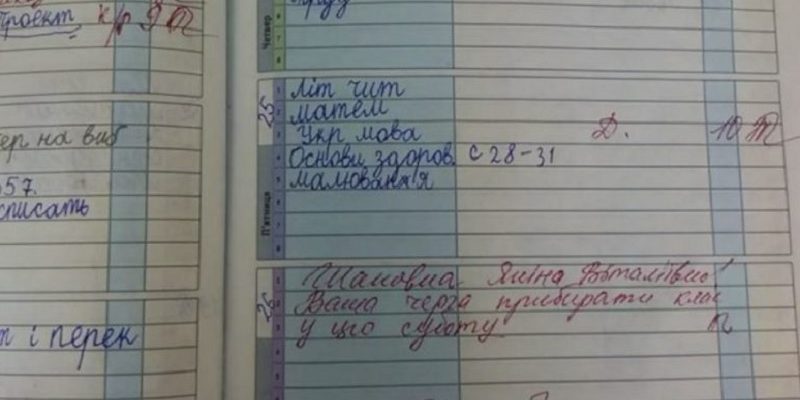 проект к/р 9
ер на виб
57.
списать
і перек
Четвер
6
7
8
25
П'ятниця
1 літ чит
2 матем
3 Укр мова Д. 10
4 Основи здоров. с 28-31
5 малювання
6
7
8
26
1 Шановна Яніна Віталіївно!
2 Ваша черга прибирати клас
3 у цю суботу